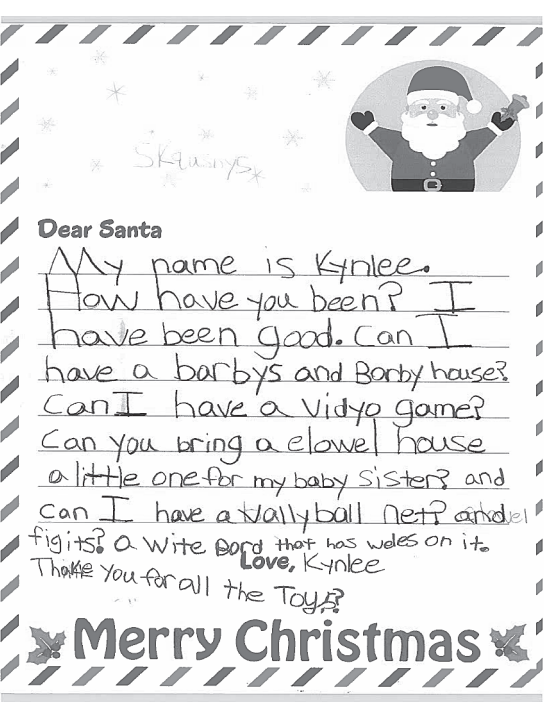 Dear Santa
My name is Kynlee.
How have you been? I
have been good. Can I
have a barbys and Barby house?
Can I have a vidyo game?
Can you bring a elowel house
a little one for my baby sister? and
can I have a Vallyball net? and
figits? a wite Bord that has weles on it.
Love, Kynlee
Thake you for all the Toys?
Merry Christmas